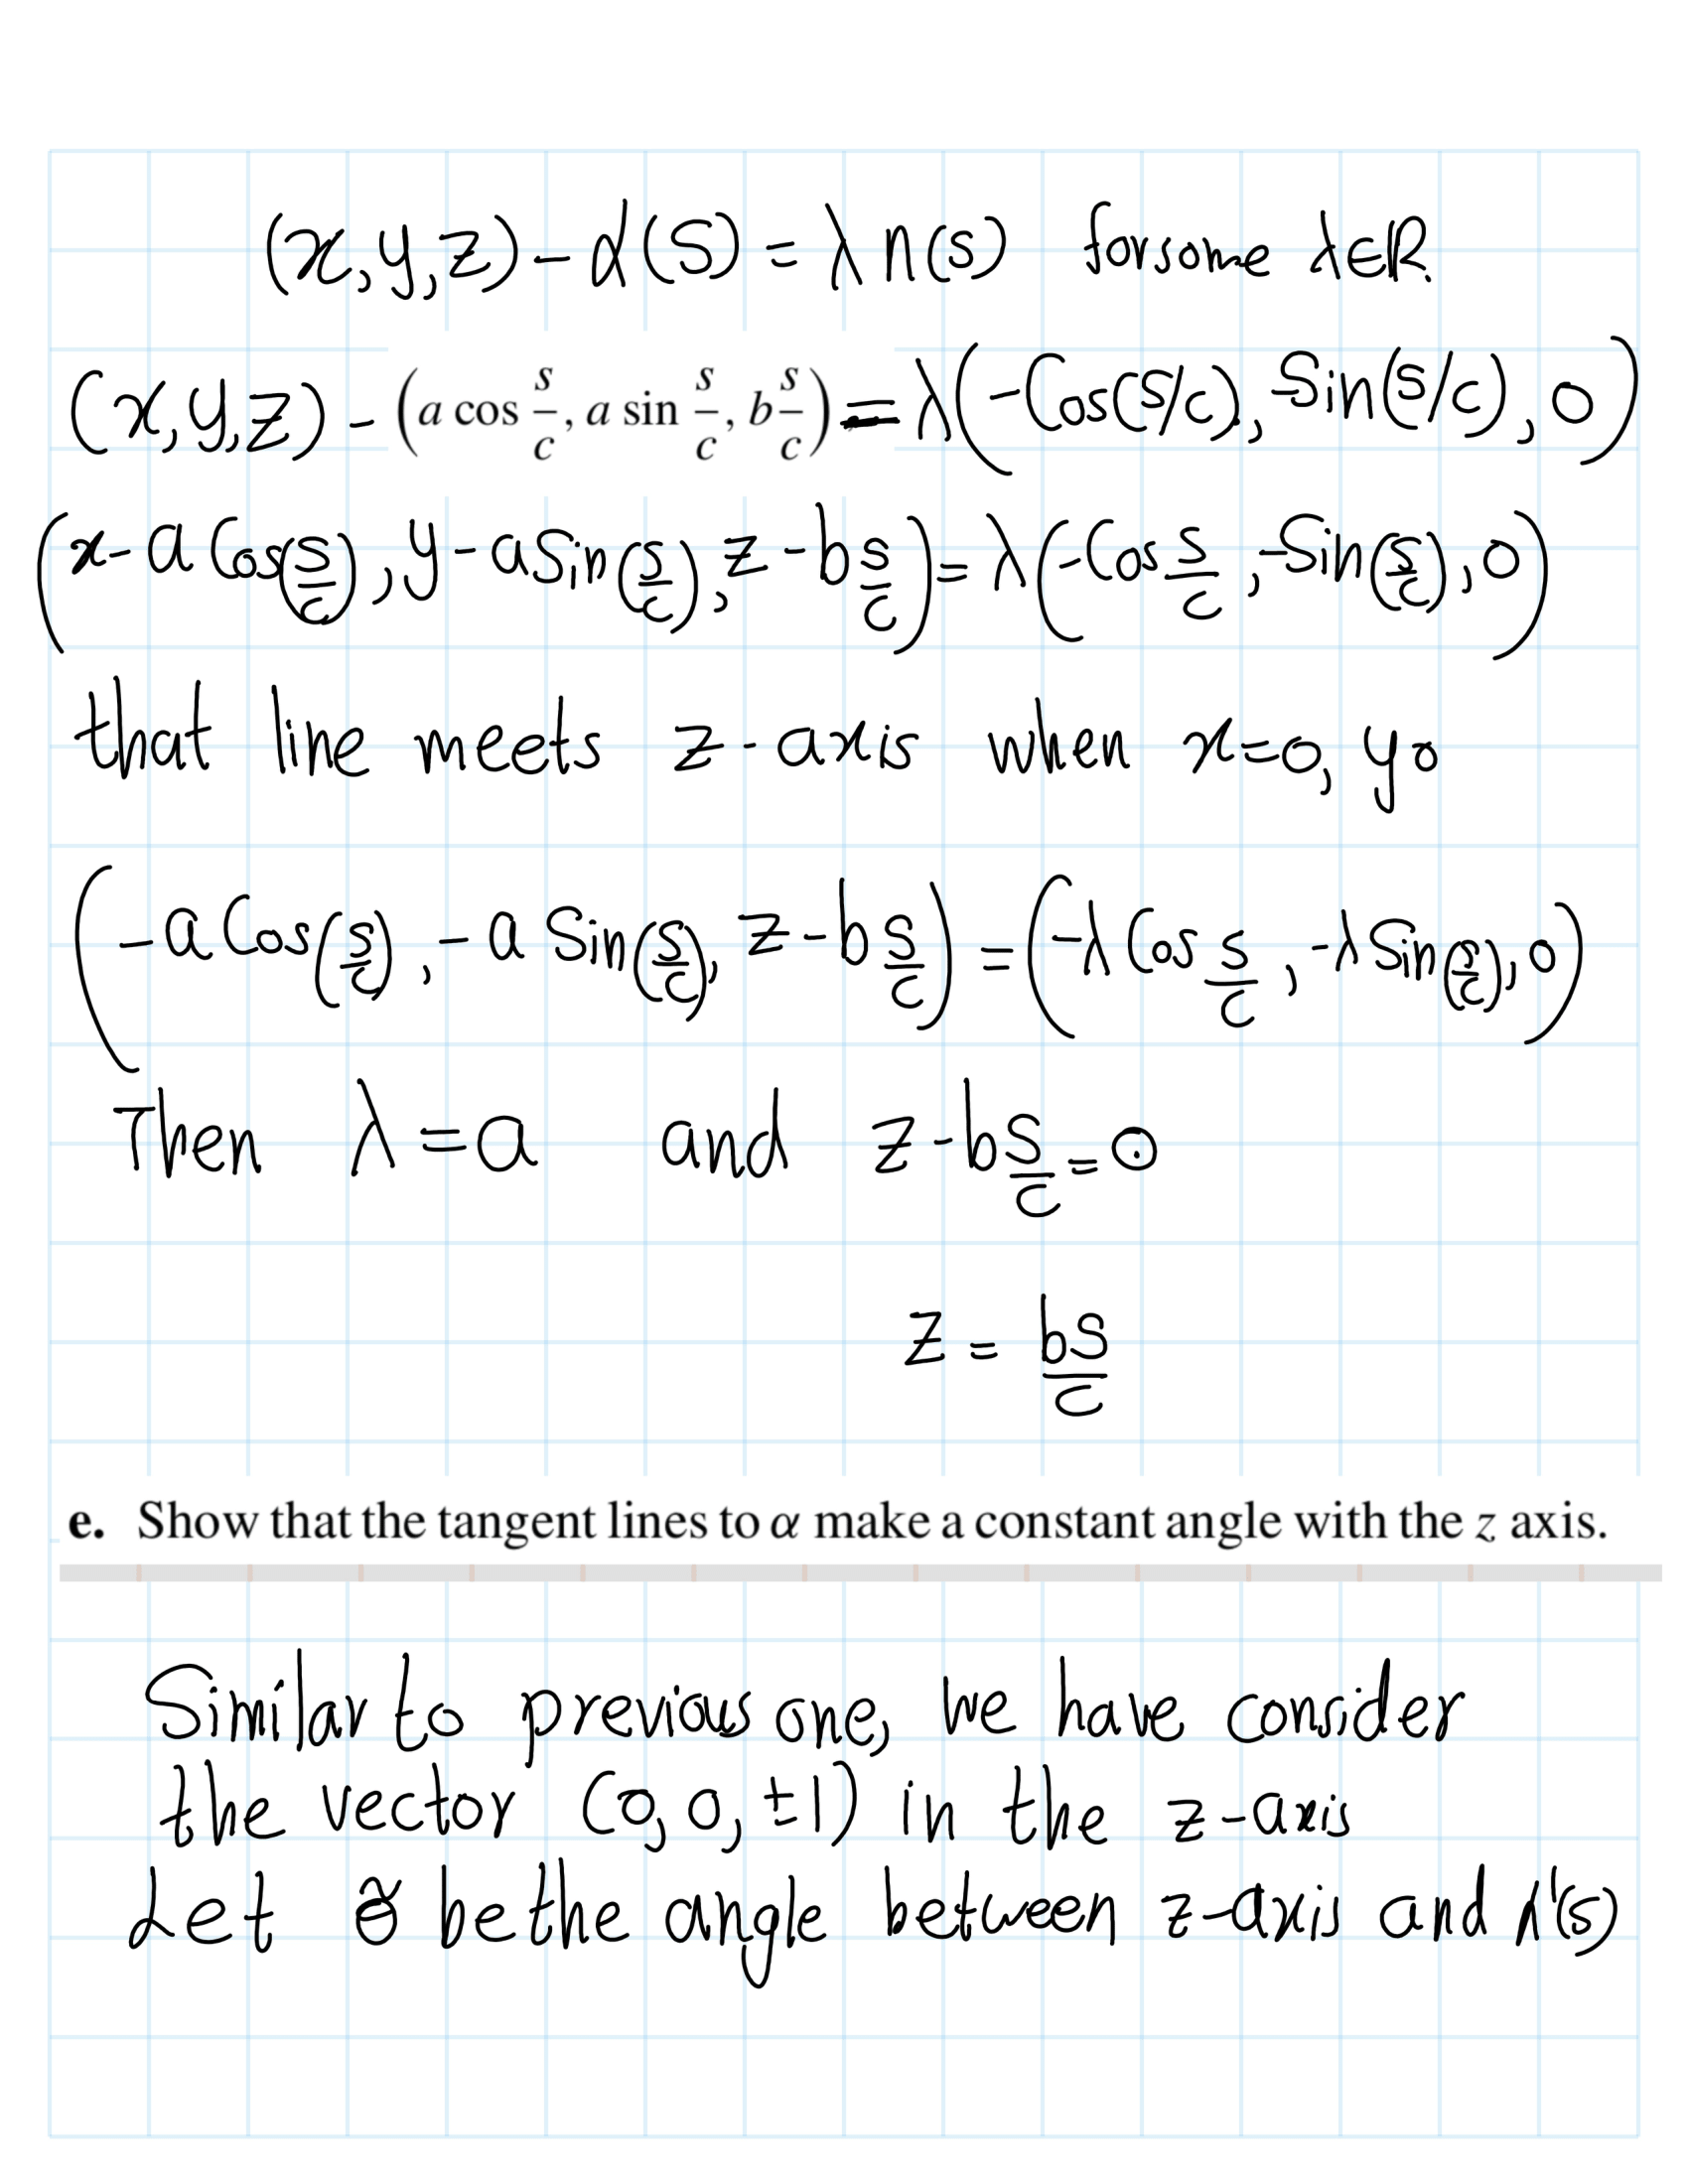 (x,y,z) - α(s) = λ n(s) for some λ∈R
(x,y,z) - (a cos s/c, a sin s/c, b s/c) = λ(-Cos(s/c), -Sin(s/c), 0)
(x - a Cos(s/c), y - a Sin(s/c), z - b s/c) = λ(-Cos s/c, -Sin(s/c), 0)
that line meets z-axis when x=0, y0
(-a Cos(s/c), -a Sin(s/c), z - b s/c) = (-λ Cos s/c, -λ Sin(s/c), 0)
Then λ = a and z - b s/c = 0
z = bs/c
e. Show that the tangent lines to α make a constant angle with the z axis.
Similar to previous one, we have consider
the vector (0, 0, ±1) in the z-axis
Let θ̃ be the angle between z-axis and α'(s)